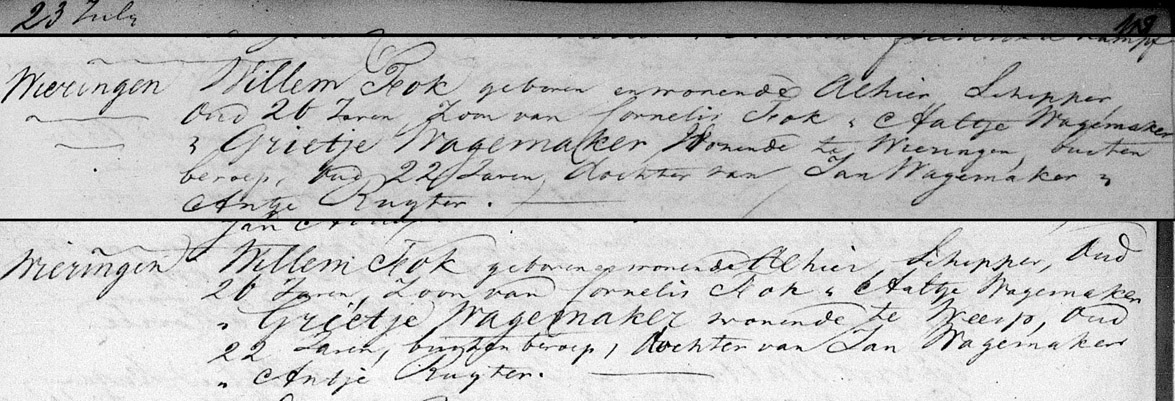 23 July
Wieringen Willem Kok geboren en wonende Alhier, Schipper,
Oud 26 Jaren, Zoon van Cornelis Kok & Aaltje Wagemaker
& Grietje Wagemaker Wonende te Wieringen, buiten
beroep, Oud 22 Jaren, Dochter van Jan Wagemaker &
Antje Ruyter.
Wieringen Willem Kok geboren en wonende Alhier, Schipper, Oud
26 Jaren, Zoon van Cornelis Kok & Aaltje Wagemaker
" Grietje Wagemaker wonende te Weesp, Oud
22 Jaren, buyten beroep, Dochter van Jan Wagemaker
" Antje Ruyter.